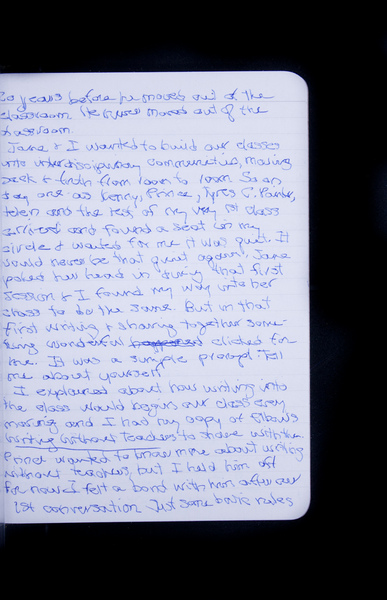 20 years before he moved out of the
classroom. He never moved out of the
classroom.
Jane & I wanted to build our classes
into interdisciplinary communities, moving
back & forth from room to room. So on
day one as Kenny, Prince, Tyres C. Parker,
and the rest of my very 1st class
arrived and found a seat in my
circle & waited for me it was quiet. It
would never be that quiet again. Jane
poked her head in during that first
session & I found my way into her
class to do the same. But in that
first writing & sharing together some-
thing wonderful happened clicked for
me. It was a simple prompt. Tell
me about yourself.
I explained about how writing into
the class would begin our class every
morning and I had my copy of Elbows
Writing Without Teachers to share with them.
Prince wanted to know more about writing
without teachers, but I held him off
for now. I felt a bond with him after our
1st conversation. Just some basic rules